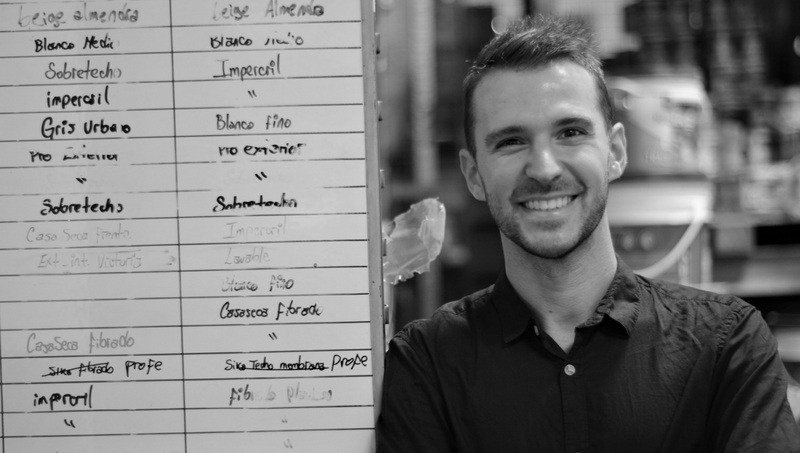 beige almendra Beige Almendra
Blanco Medio Blanco
Sobretecho Impercril
impercril "
Gris Urbano Blanco fino
Pro exterior Pro exterior
" "
Sobretecho Sobretecho
Casa Seca frentes Impercril
Ext_int. Lavable
Blanco fino
Casaseca fibrado
CasaSeca fibrado "
Sika fibrado profe Sika Techo membrana Profe
impercril fibrado
" "
"